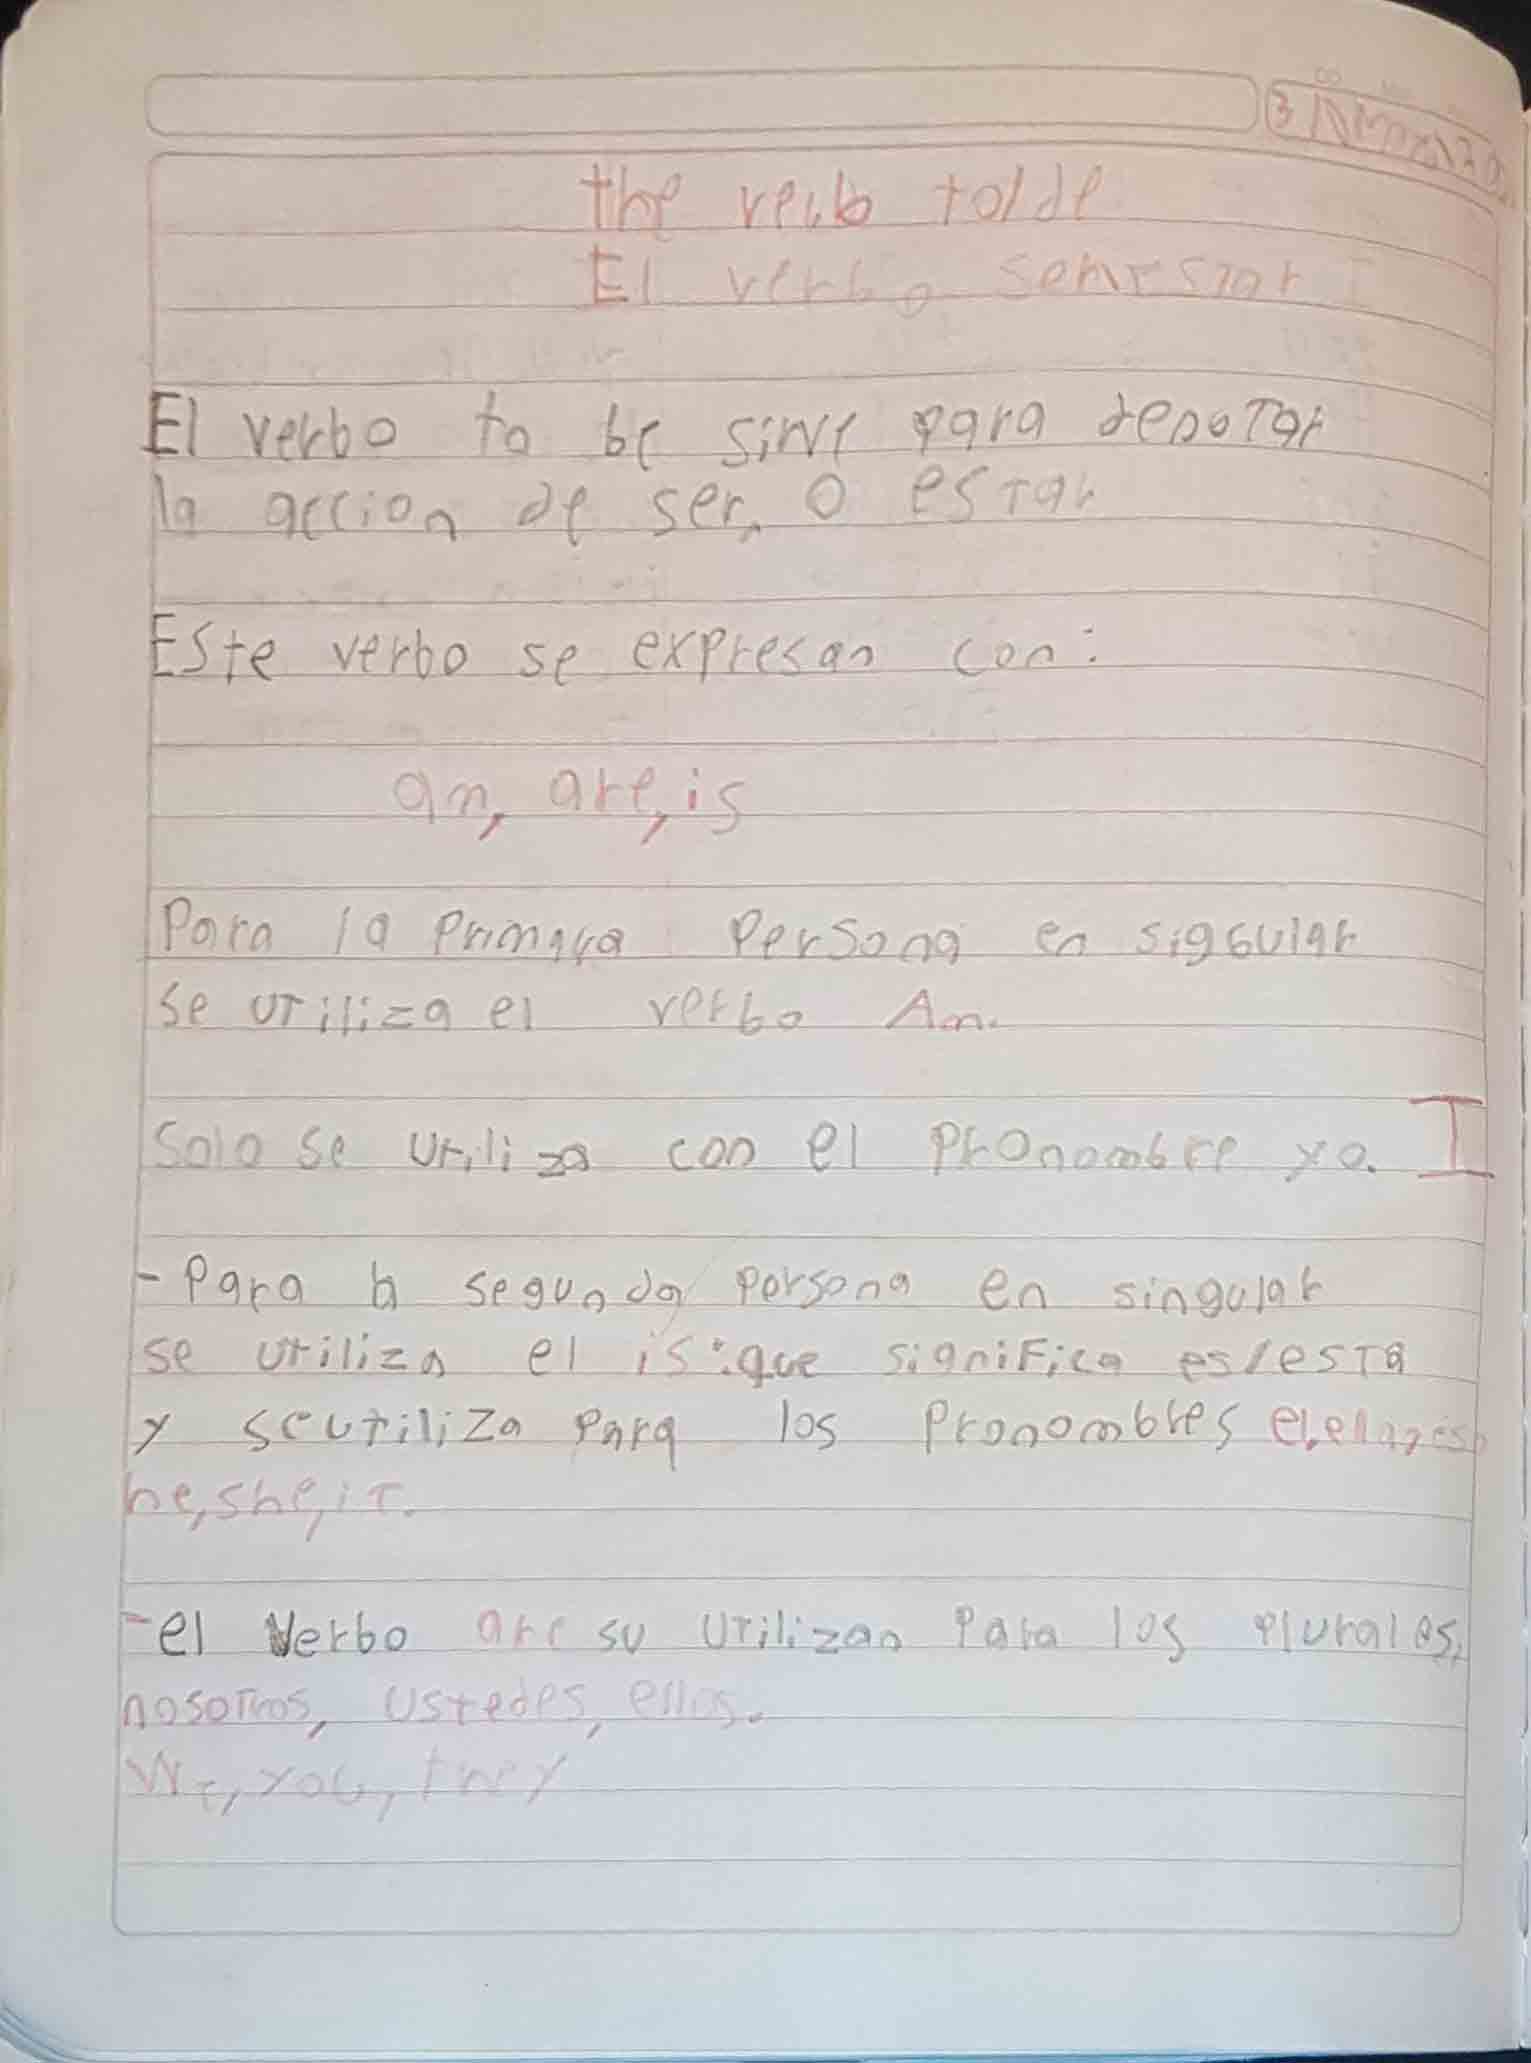 the verb to/de
El verbo ser/estar
El verbo to be sirve para denotar
la accion de ser, o estar
Este verbo se expresan con:
am, are, is
Para la Primara Persona en sigsular
se utiliza el verbo Am.
Solo se utiliza con el pronombre yo. I
- Para la segunda persona en singular
se utiliza el is: que significa es/esta
y se utiliza para los pronombres el,ella,
he, she, it.
- el verbo are su utilizan para los plurales,
nosotros, ustedes, ellos.
We, you, they